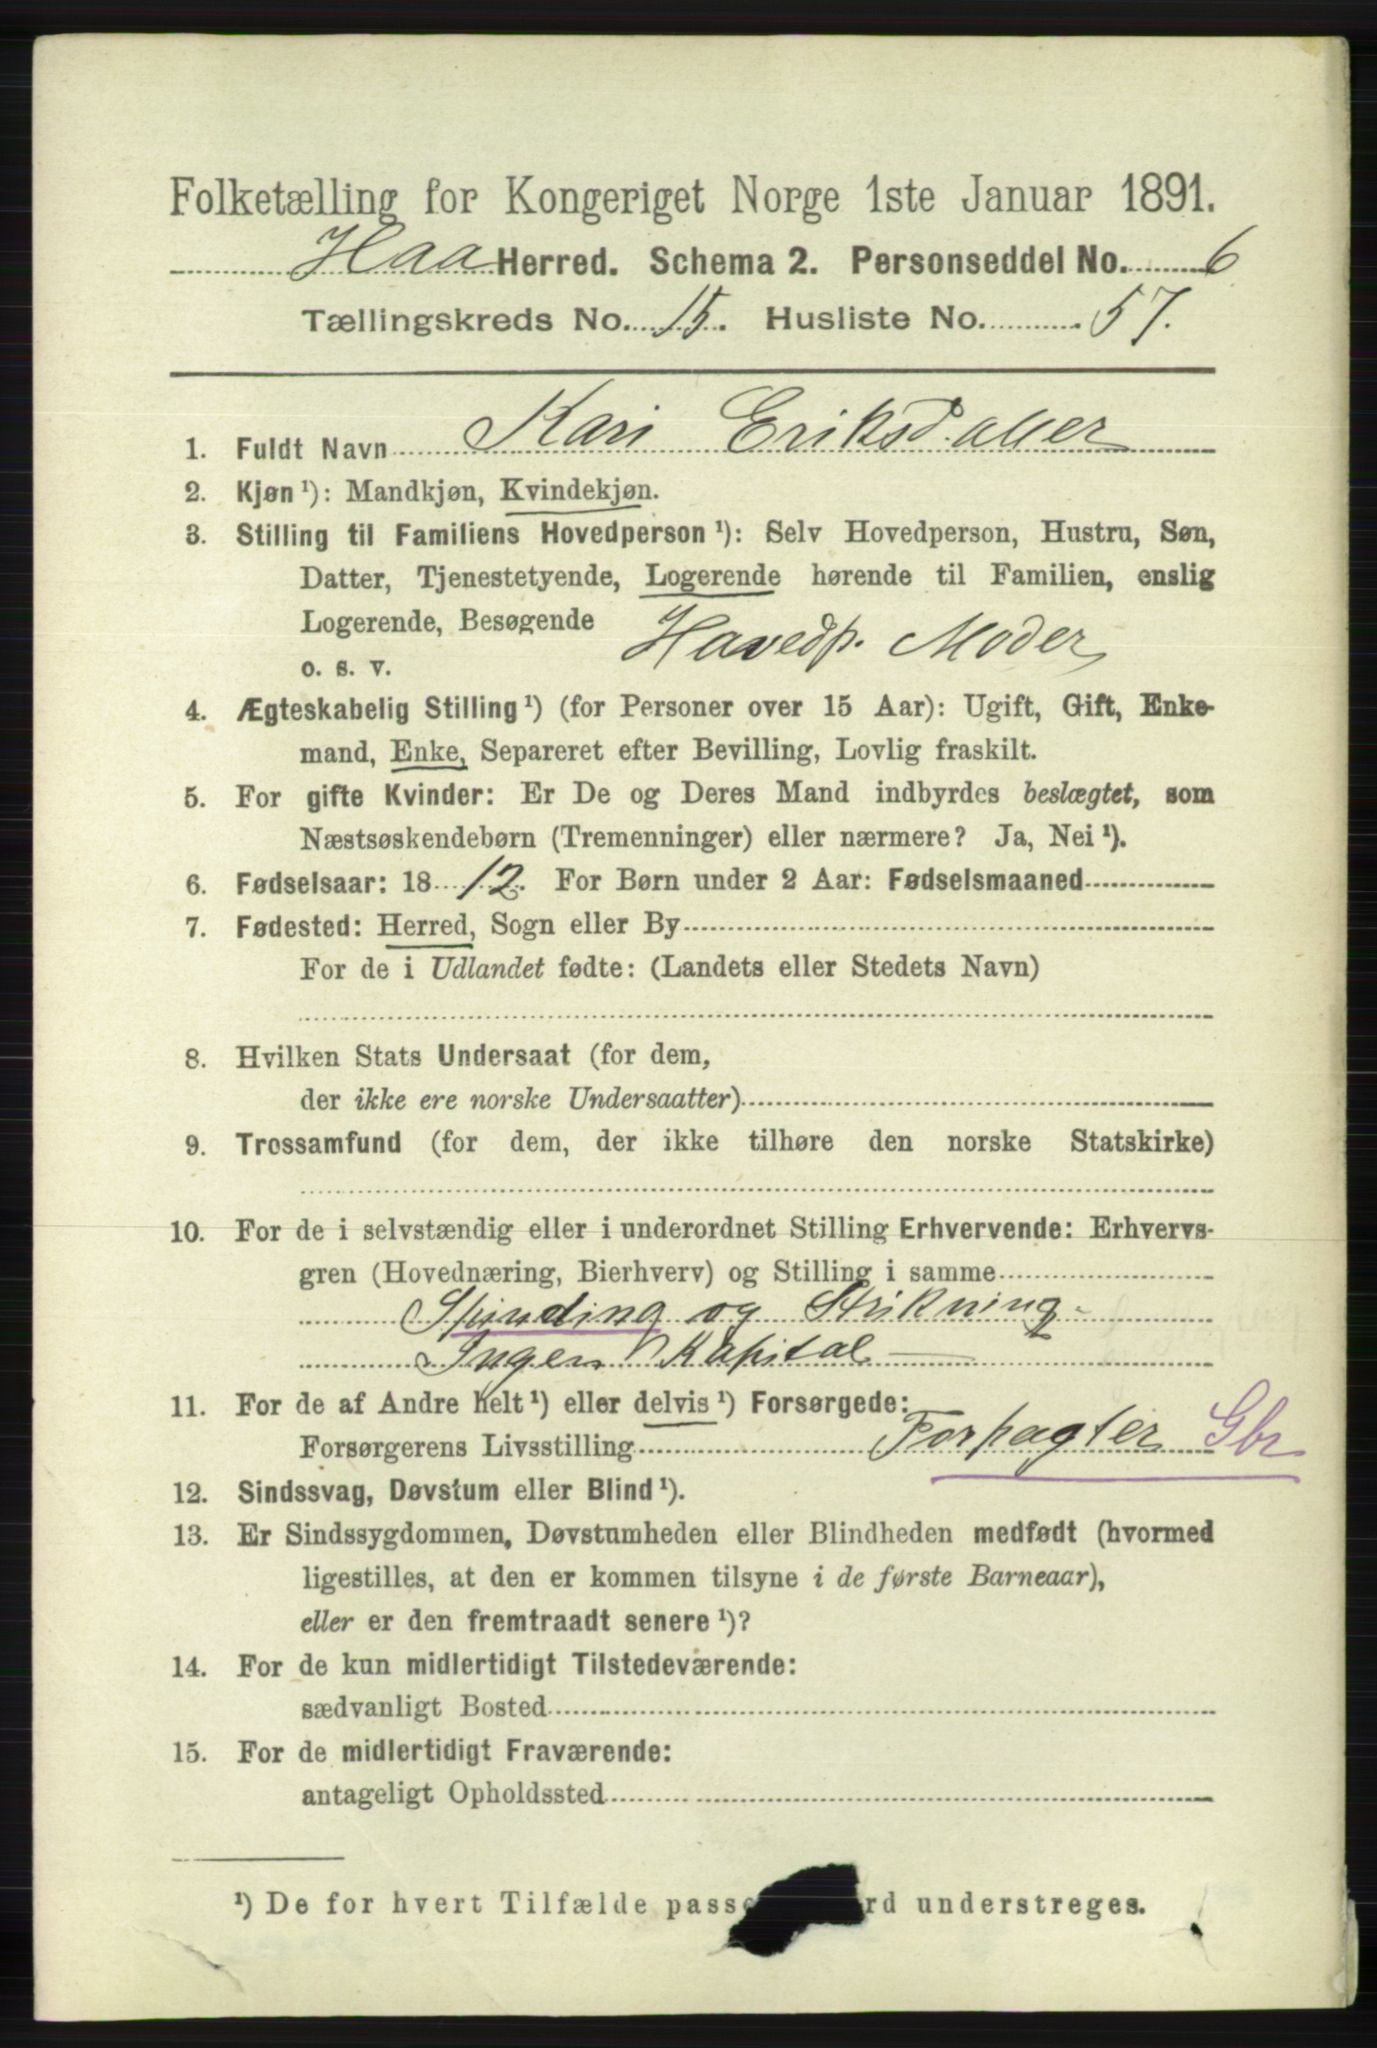 Folketælling for Kongeriget Norge 1ste Januar 1891.
Haa Herred. Schema 2. Personseddel No. 6
Tællingskreds No. 15. Husliste No. 57.
1. Fuldt Navn Kari Eriksdatter
2. Kjøn ¹): Mandkjøn, Kvindekjøn.
3. Stilling til Familiens Hovedperson ¹): Selv Hovedperson, Hustru, Søn,
Datter, Tjenestetyende, Logerende hørende til Familien, enslig
Logerende, Besøgende Hovedp. Moder
o. s. v.
4. Ægteskabelig Stilling ¹) (for Personer over 15 Aar): Ugift, Gift, Enke-
mand, Enke, Separeret efter Bevilling, Lovlig fraskilt.
5. For gifte Kvinder: Er De og Deres Mand indbyrdes beslægtet, som
Næstsøskendebørn (Tremenninger) eller nærmere? Ja, Nei ¹).
6. Fødselsaar: 1812. For Børn under 2 Aar: Fødselsmaaned
7. Fødested: Herred, Sogn eller By
For de i Udlandet fødte: (Landets eller Stedets Navn)
8. Hvilken Stats Undersaat (for dem,
der ikke ere norske Undersaatter)
9. Trossamfund (for dem, der ikke tilhøre den norske Statskirke)
10. For de i selvstændig eller i underordnet Stilling Erhvervende: Erhvervs-
gren (Hovednæring, Bierhverv) og Stilling i samme
Spinding og Strikning
Ingen Kapital
11. For de af Andre helt ¹) eller delvis ¹) Forsørgede:
Forsørgerens Livsstilling Forpagter Gbr
12. Sindssvag, Døvstum eller Blind ¹).
13. Er Sindssygdommen, Døvstumheden eller Blindheden medfødt (hvormed
ligestilles, at den er kommen tilsyne i de første Barneaar),
eller er den fremtraadt senere ¹)?
14. For de kun midlertidigt Tilstedeværende:
sædvanligt Bosted
15. For de midlertidigt Fraværende:
antageligt Opholdssted
¹) De for hvert Tilfælde passe rd understreges.